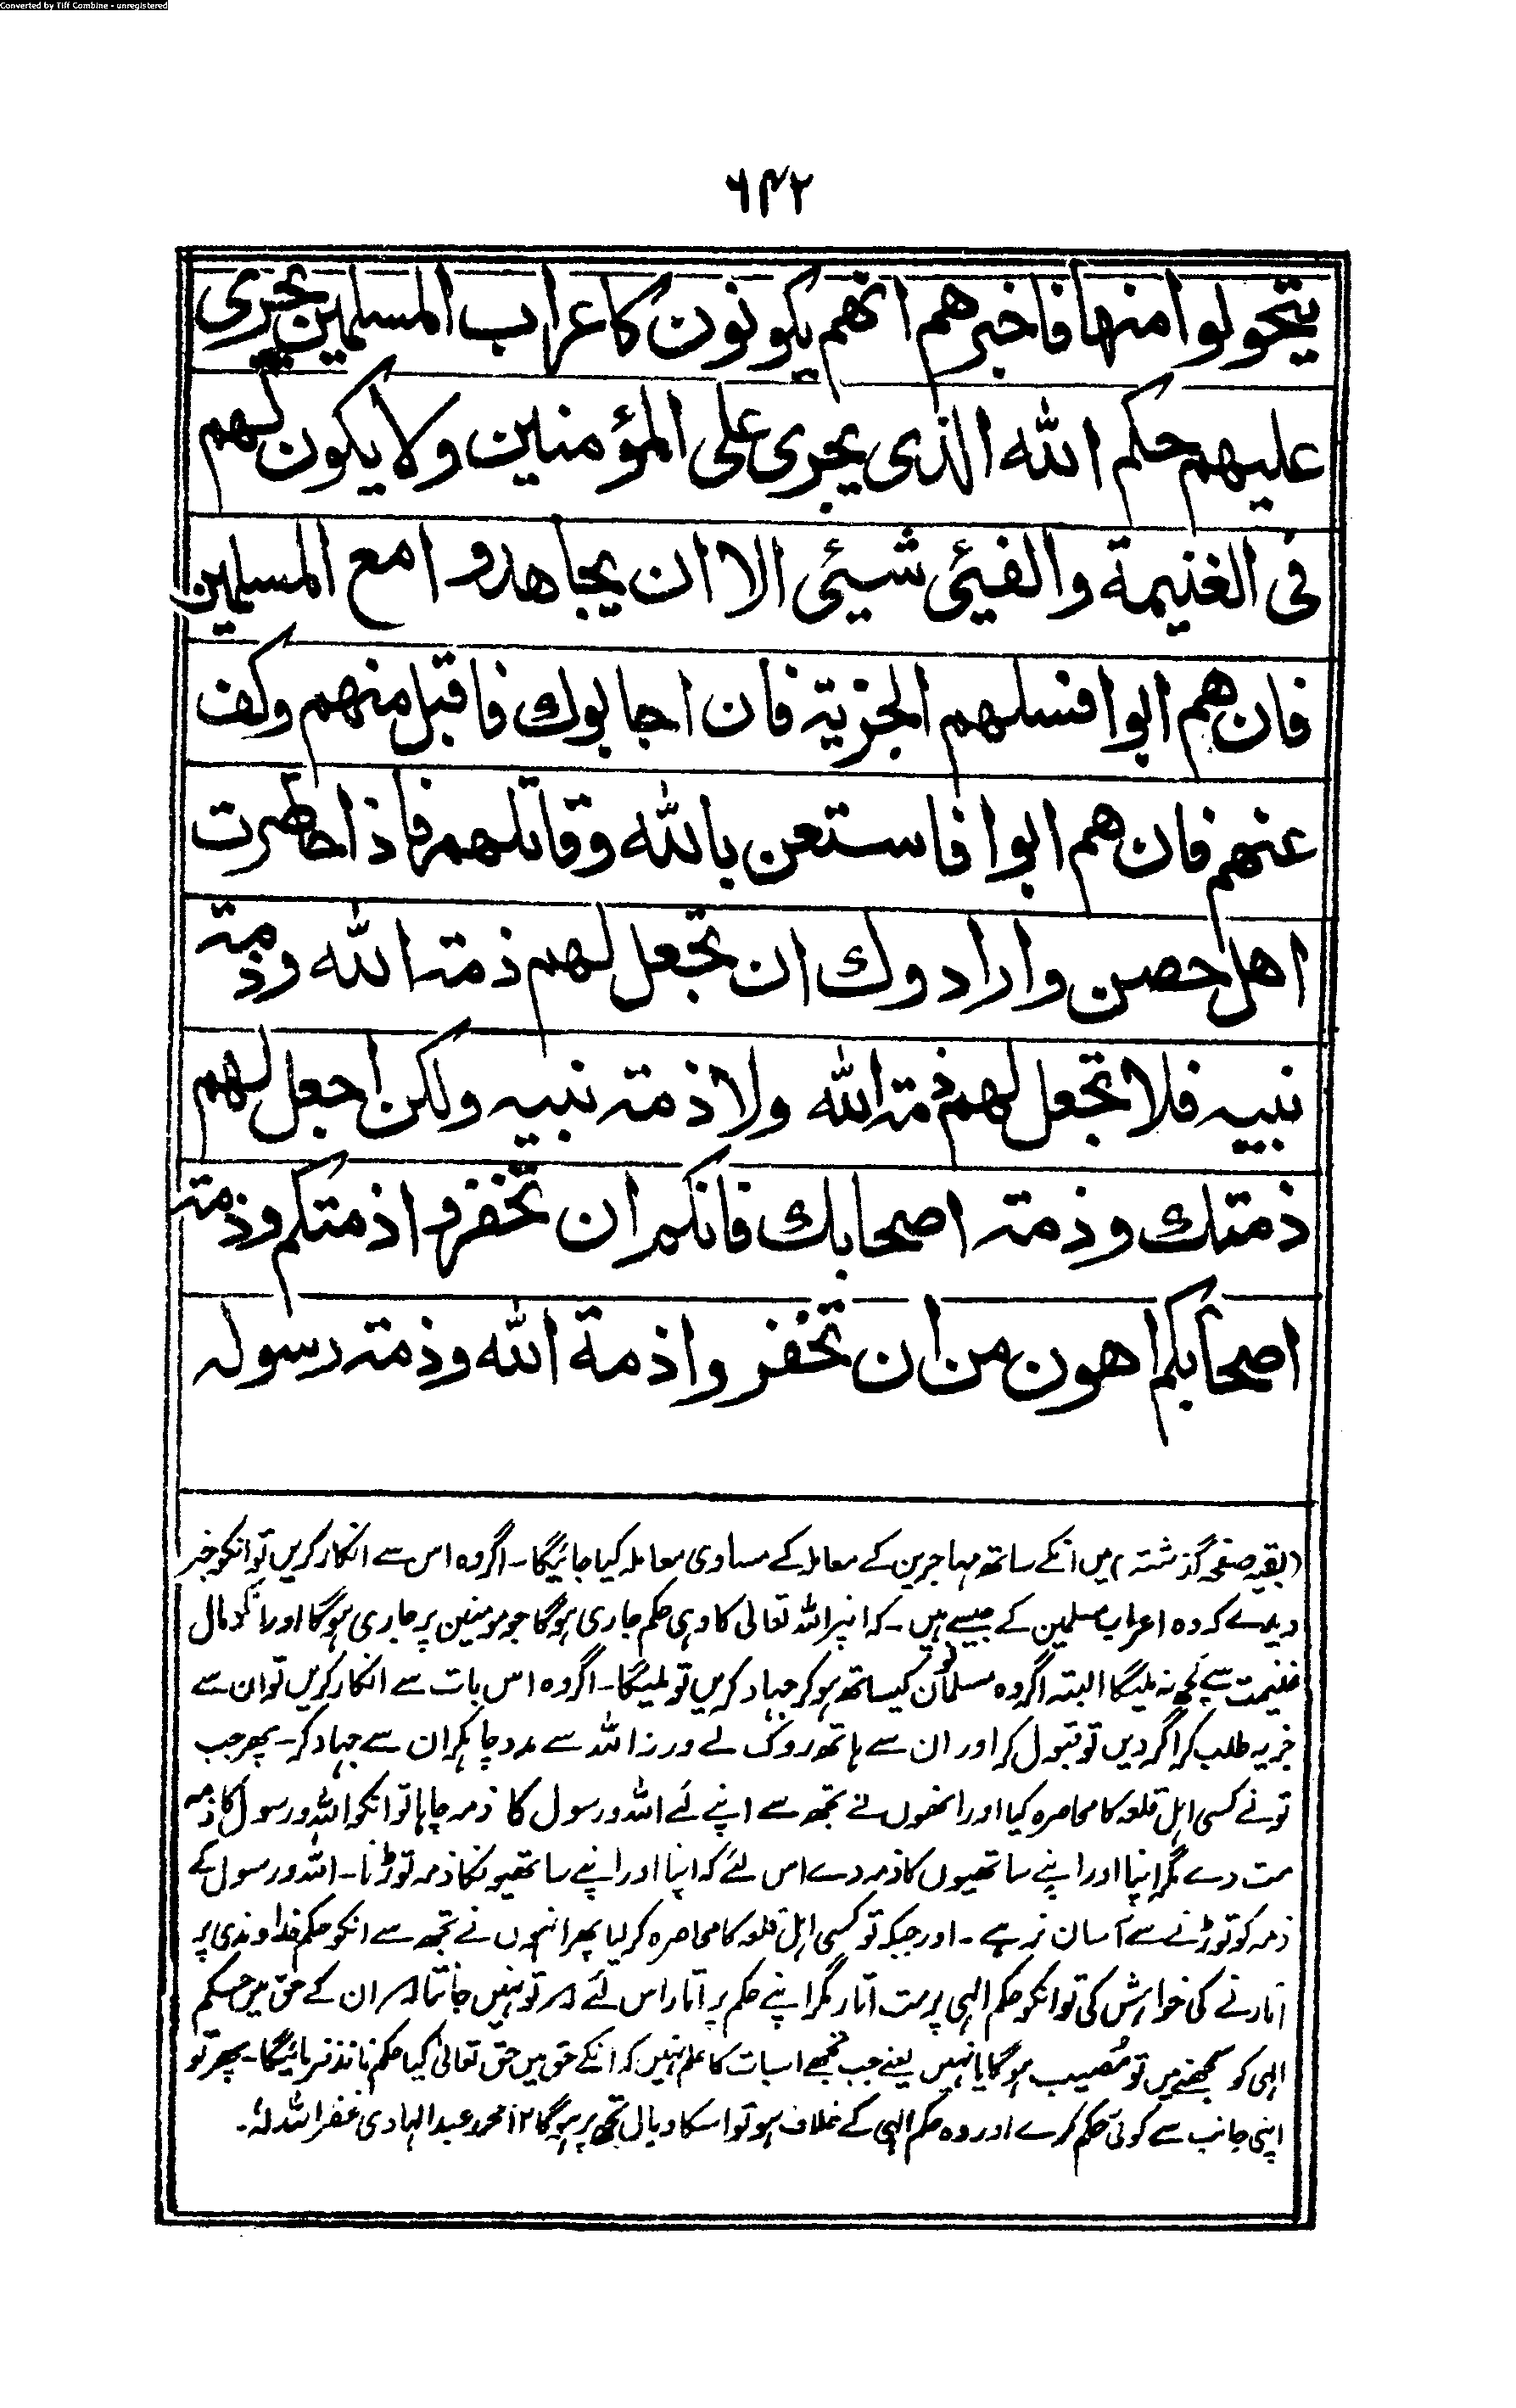 Converted by Tiff Combine - unregistered
٦٤٢
يتحولوا منها فاخبرهم انهم يكونون كاعراب المسلمين يجرى
عليهم حكم الله الذى يجرى على المؤمنين ولا يكون لهم
فى الغنيمة والفيئى شيئى الا ان يجاهدوا مع المسلمين
فان هم ابوا فسلهم الجزية فان اجابوك فاقبل منهم وكف
عنهم فان هم ابوا فاستعن بالله وقاتلهم فاذا حاصرت
اهل حصن وارادوك ان تجعل لهم ذمة الله وذمة
نبيه فلا تجعل لهم ذمة الله ولا ذمة نبيه ولكن اجعل لهم
ذمتك وذمة اصحابك فانكم ان تخفروا ذمتكم وذمة
اصحابكم اهون من ان تخفروا ذمة الله وذمة رسوله
(بقیہ صفحہ گذشتہ) میں انکے ساتھ مہاجرین کے معاملہ کے مساوی معاملہ کیا جائیگا۔ اگر وہ اس سے انکار کریں تو انکو خبر
دیدے کہ وہ اعراب مسلمین کے جیسے ہیں۔ کہ انپر اللہ تعالی کا وہی حکم جاری ہوگا جو مومنین پر جاری ہوگا اور انکو مال
غنیمت سے کچھ نہ ملیگا البتہ اگر وہ مسلمانوں کیساتھ ہو کر جہاد کریں تو ملیگا۔ اگر وہ اس بات سے انکار کریں تو ان سے
جزیہ طلب کر اگر دیں تو قبول کر اور ان سے ہاتھ روک لے ورنہ اللہ سے مدد چاہکر ان سے جہاد کر۔ پھر جب
تو نے کسی اہل قلعہ کا محاصرہ کیا اور انھوں نے تجھ سے اپنے لئے اللہ ورسول کا ذمہ چاہا تو انکو اللہ ورسول کا ذمہ
مت دے مگر اپنا اور اپنے ساتھیوں کا ذمہ دے اس لئے کہ اپنا اور اپنے ساتھیونکا ذمہ توڑنا۔ اللہ ورسول کے
ذمہ کو توڑنے سے آسان تر ہے۔ اور جبکہ تو کسی اہل قلعہ کا محاصرہ کر لیا پھر انہوں نے تجھ سے انکو حکم خداوندی پر
اتارنے کی خواہش کی تو انکو حکم الہی پر مت اتار مگر اپنے حکم پر اتار اس لئے کہ تو نہیں جانتا کہ ان کے حق میں حکم
الہی کو سمجھنے میں تو مصیب ہوگا یا نہیں یعنے جب تجھے اسبات کا علم نہیں کہ انکے حق میں حق تعالیٰ کیا حکم نافذ فرمائیگا۔ پھر تو
اپنی جانب سے کوئی حکم کرے اور وہ حکم الہی کے خلاف ہو تو اسکا وبال تجھ پر ہوگا ١٢ محمد عبد الہادی غفر اللہ لہٗ۔